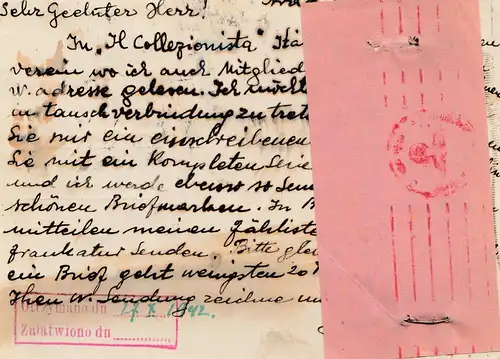 Sehr Geehrter Herr!
In "Il Collezionista" Itä
verein wo ich auch Mitglied
w. adresse gelesen. Ich möcht
in tauschverbindung zu tret
Sie mir ein einschreibenen
Sie mit ein Kompleten Serie
und ich werde ebenso so Sen
schönen Briefmarken. In B
mitteilen meinen fählliste
frankatur Senden. Bitte glei
ein Brief geht wenigsten 20
Ihen w. Sendung zeichne un
Otrzymano dn 27 X 1942.
Załatwiono dn